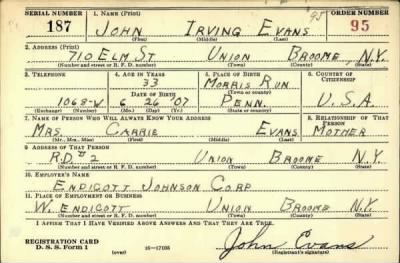 SERIAL NUMBER 1. NAME (Print) 95 ORDER NUMBER
187 JOHN IRVING EVANS 95
(First) (Middle) (Last)
2. ADDRESS (Print)
710 ELM ST UNION BROOME, N.Y.
(Number and street or R. F. D. number) (Town) (County) (State)
3. TELEPHONE 4. AGE IN YEARS 5. PLACE OF BIRTH 6. COUNTRY OF CITIZENSHIP
33 MORRIS RUN
DATE OF BIRTH (Town or county)
1068-W 6 26 '07 PENN. U.S.A.
(Exchange) (Number) (Mo.) (Day) (Yr.) (State or country)
7. NAME OF PERSON WHO WILL ALWAYS KNOW YOUR ADDRESS 8. RELATIONSHIP OF THAT PERSON
MRS. CARRIE EVANS MOTHER
(Mr., Mrs., Miss) (First) (Middle) (Last)
9. ADDRESS OF THAT PERSON
R.D. #2 UNION BROOME N.Y.
(Number and street or R. F. D. number) (Town) (County) (State)
10. EMPLOYER'S NAME
ENDICOTT JOHNSON CORP
11. PLACE OF EMPLOYMENT OR BUSINESS
W. ENDICOTT UNION BROOME N.Y.
(Number and street or R. F. D. number) (Town) (County) (State)
I AFFIRM THAT I HAVE VERIFIED ABOVE ANSWERS AND THAT THEY ARE TRUE.
REGISTRATION CARD
D. S. S. Form 1 (over) 16-17105 John Evans
(Registrant's signature)